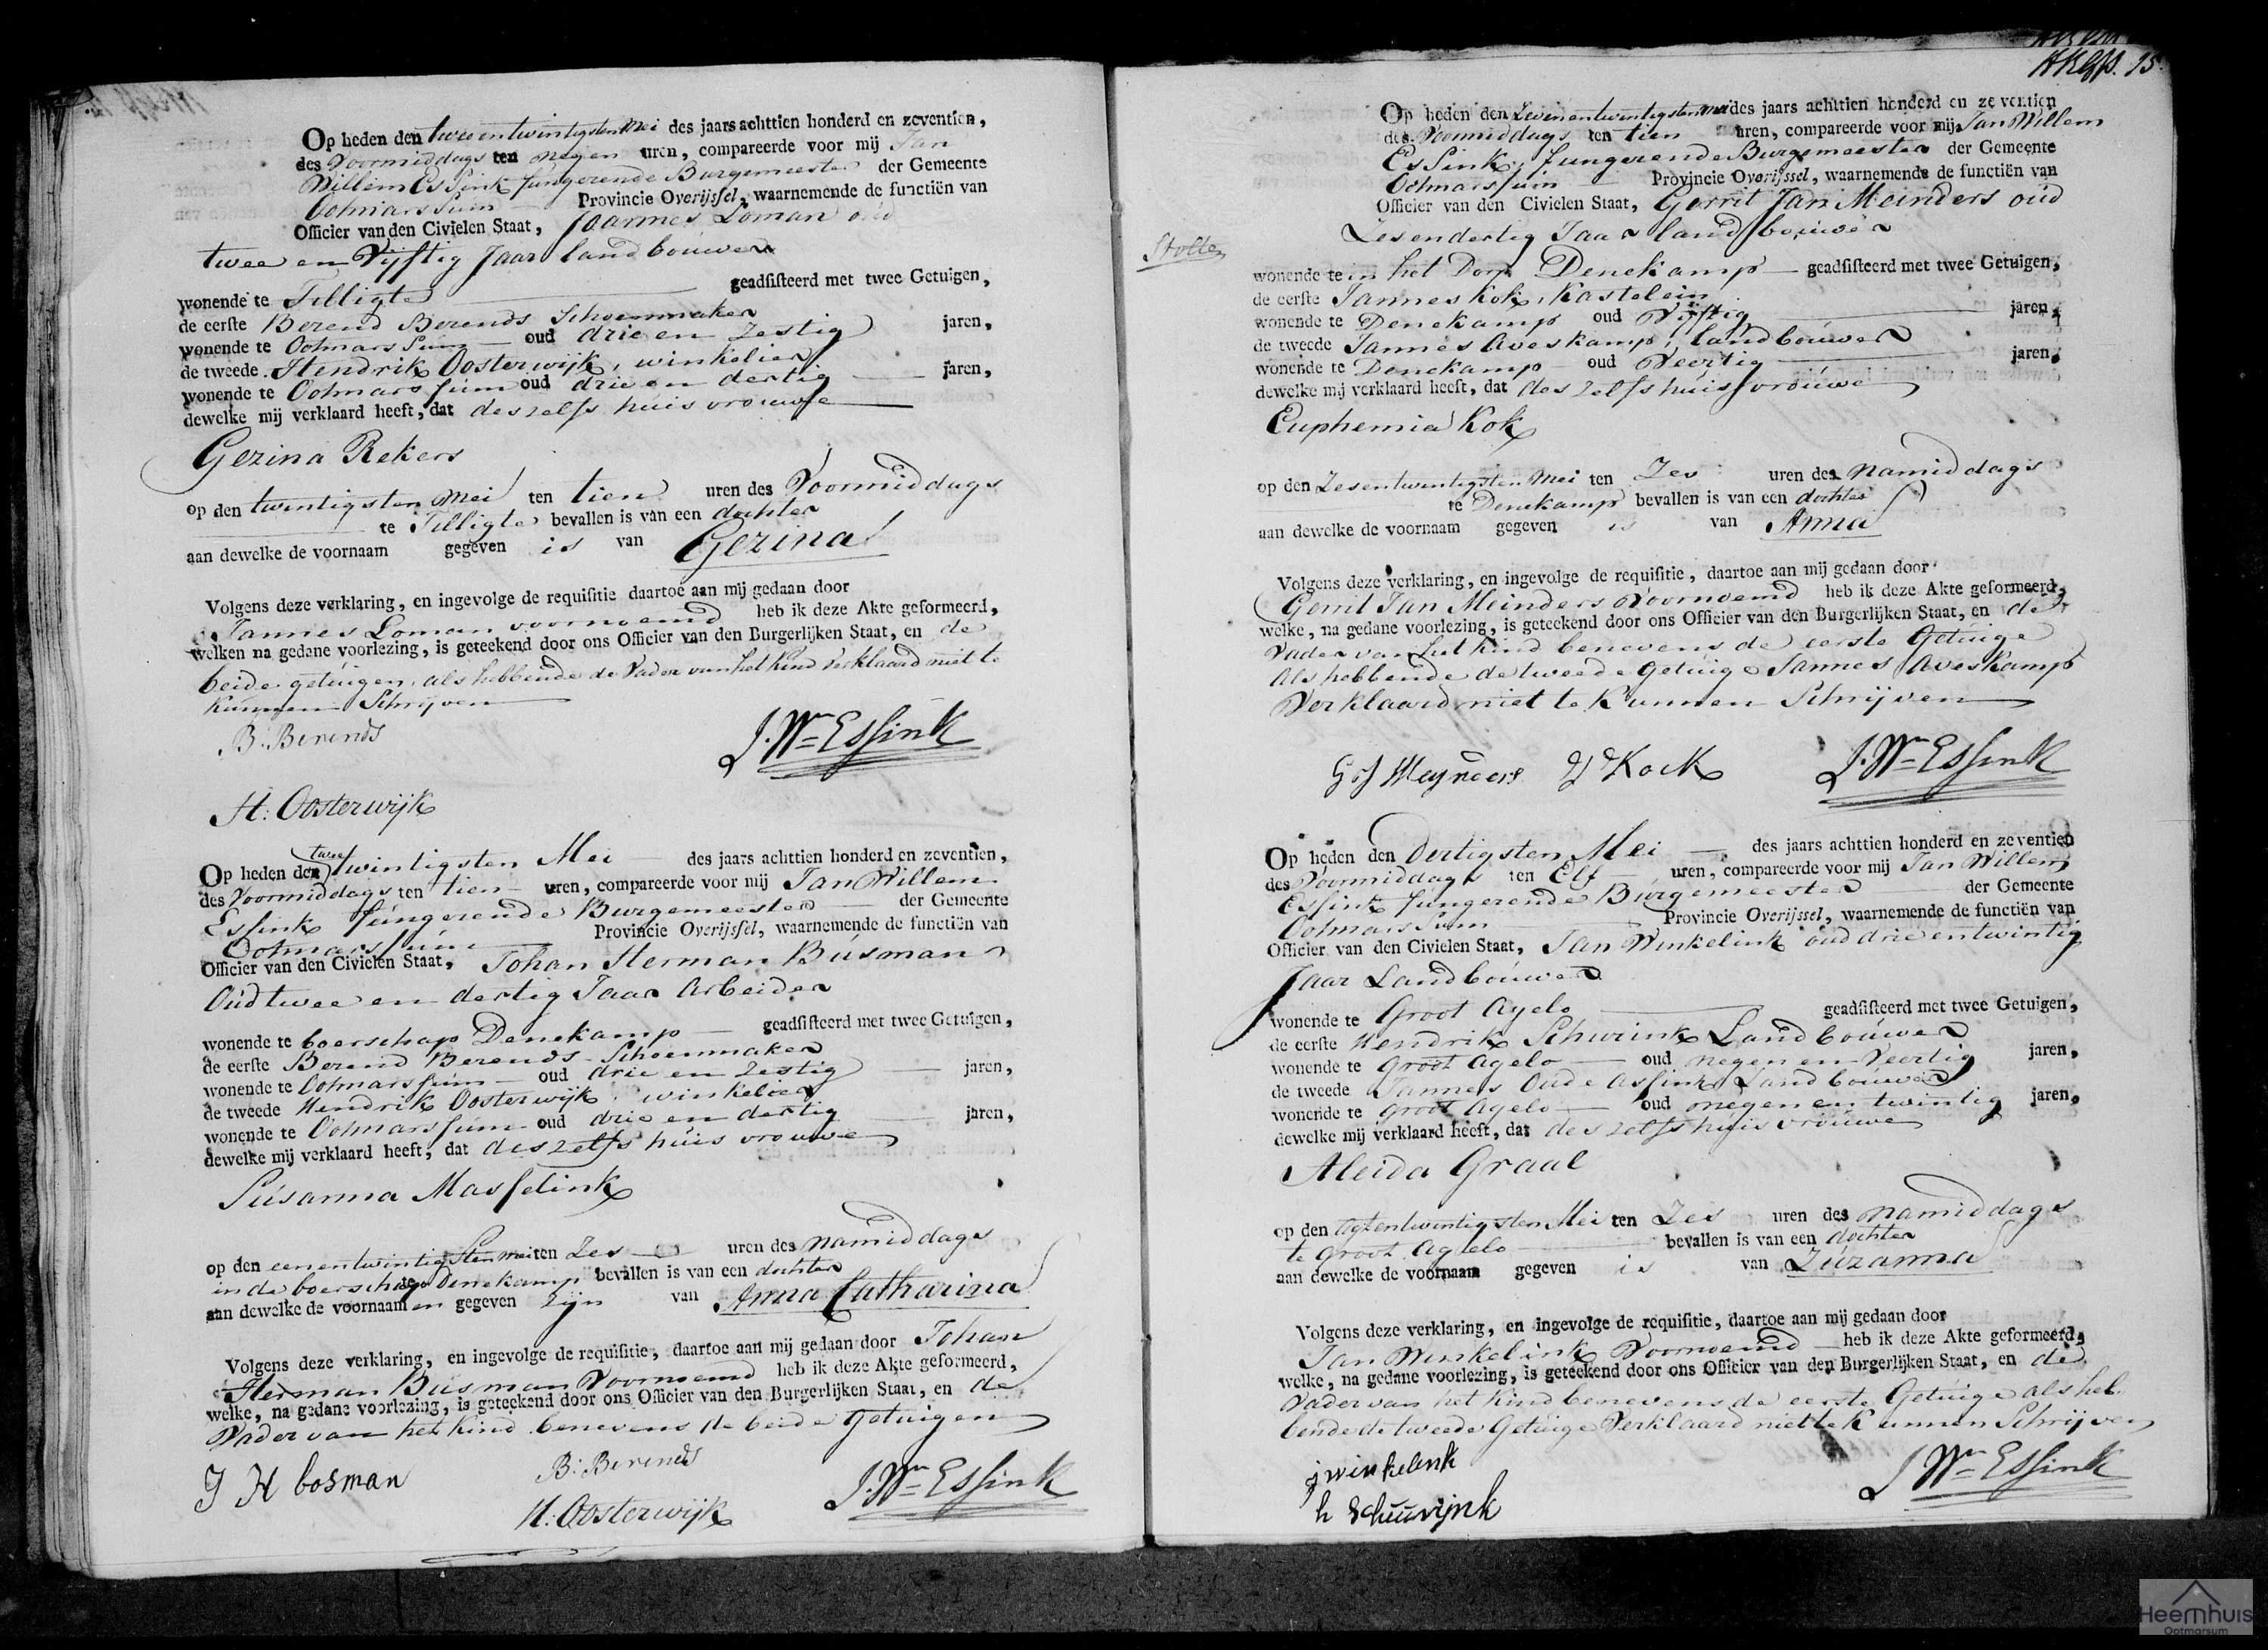 Op heden den twee en twintigsten Mei des jaars achttien honderd en zeventien,
des Voormiddags ten negen uren, compareerde voor mij Jan
Willem Essink fungerende Burgemeester der Gemeente
Ootmarssum Provincie Overijssel, waarnemende de functiën van
Officier van den Civielen Staat, Joannes Loman oud
twee en Vijftig Jaar landbouwer
wonende te Tilligte geadsisteerd met twee Getuigen,
de eerste Berend Berends Schoenmaker
wonende te Ootmarssum oud drie en zestig jaren,
de tweede Hendrik Oosterwijk, winkelier
wonende te Ootmarssum oud drie en dertig jaren,
dewelke mij verklaard heeft, dat deszelfs huisvrouwe
Gezina Rekers
op den twintigsten Mei ten tien uren des Voormiddags
te Tilligte bevallen is van een dochter
aan dewelke de voornaam gegeven is van Gezina
Volgens deze verklaring, en ingevolge de requisitie daartoe aan mij gedaan door
Jannes Loman voornoemd heb ik deze Akte geformeerd,
welken na gedane voorlezing, is geteekend door ons Officier van den Burgerlijken Staat, en de
beide getuigen, als hebbende de Vader van het Kind verklaard niet te
kunnen Schrijven
B: Berends
J. Wm Essink
H: Oosterwijk
Op heden den twee twintigsten Mei des jaars achttien honderd en zeventien,
des Voormiddags ten tien uren, compareerde voor mij Jan Willem
Essink fungerende Burgemeester der Gemeente
Ootmarssum Provincie Overijssel, waarnemende de functiën van
Officier van den Civielen Staat, Johan Herman Busman
Oud twee en dertig Jaar Arbeider
wonende te boerschap Denekamp geadsisteerd met twee Getuigen,
de eerste Berend Berends Schoenmaker
wonende te Ootmarssum oud drie en zestig jaren,
de tweede Hendrik Oosterwijk, winkelier
wonende te Ootmarssum oud drie en dertig jaren,
dewelke mij verklaard heeft, dat deszelfs huisvrouwe
Susanna Masselink
op den eenentwintigsten mei ten Zes uren des namiddags
in de boerschap te Denekamp bevallen is van een dochter
aan dewelke de voornaamen gegeven zijn van Anna Catharina
Volgens deze verklaring, en ingevolge de requisitie, daartoe aan mij gedaan door Johan
Herman Busman Voornoemd heb ik deze Akte geformeerd,
welke, na gedane voorlezing, is geteekend door ons Officier van den Burgerlijken Staat, en de
Vader van het Kind benevens de beide Getuigen
J H bosman
B: Berends
H: Oosterwijk
J. Wm Essink
15.
Op heden den Zevenentwintigsten mei des jaars achttien honderd en zeventien
des Voormiddags ten tien uren, compareerde voor mij Jan Willem
Essink, fungerende Burgemeester der Gemeente
Ootmarssum Provincie Overijssel, waarnemende de functiën van
Officier van den Civielen Staat, Gerrit Jan Meinders oud
Zesendertig Jaar landbouwer
Stolte
wonende te in het Dorp Denekamp geadsisteerd met twee Getuigen,
de eerste Jannes Kok, Kastelein
wonende te Denekamp oud Vijftig jaren,
de tweede Jannes Aveskamp, landbouwer
wonende te Denekamp oud Veertig jaren,
dewelke mij verklaard heeft, dat deszelfs huisvrouwe
Euphemia Kok
op den Zesentwintigsten Mei ten Zes uren des namiddags
te Denekamp bevallen is van een dochter
aan dewelke de voornaam gegeven is van Anna
Volgens deze verklaring, en ingevolge de requisitie, daartoe aan mij gedaan door
Gerrit Jan Meinders Voornoemd heb ik deze Akte geformeerd,
welke, na gedane voorlezing, is geteekend door ons Officier van den Burgerlijken Staat, en de
Vader van het Kind benevens de eerste Getuige
Als hebbende de tweede Getuige Jannes Aveskamp
Verklaard niet te Kunnen Schrijven
G J Meynders
J Kock
J. Wm Essink
Op heden den Dertigsten Mei des jaars achttien honderd en zeventien
des Voormiddags ten Elf uren, compareerde voor mij Jan Willem
Essink fungerende Burgemeester der Gemeente
Ootmarssum Provincie Overijssel, waarnemende de functiën van
Officier van den Civielen Staat, Jan Winkelink oud drie entwintig
Jaar Landbouwer
wonende te Groot Agelo geadsisteerd met twee Getuigen,
de eerste Hendrik Schurink Landbouwer
wonende te Groot Agelo oud negen en Veertig jaren,
de tweede Jannes Oude Assink Landbouwer
wonende te Groot Agelo oud negen en twintig jaren,
dewelke mij verklaard heeft, dat deszelfs huisvrouwe
Aleida Graal
op den agtentwintigsten Mei ten Zes uren des namiddags
te Groot Agelo bevallen is van een dochter
aan dewelke de voornaam gegeven is van Zuzanna
Volgens deze verklaring, en ingevolge de requisitie, daartoe aan mij gedaan door
Jan Winkelink Voornoemd heb ik deze Akte geformeerd,
welke, na gedane voorlezing, is geteekend door ons Officier van den Burgerlijken Staat, en de
Vader van het Kind benevens de eerste Getuige als heb
bende de tweede Getuige Verklaard niet te Kunnen Schrijven
j winkelink
h Schuurijnk
J Wm Essink
Heemhuis
Ootmarsum